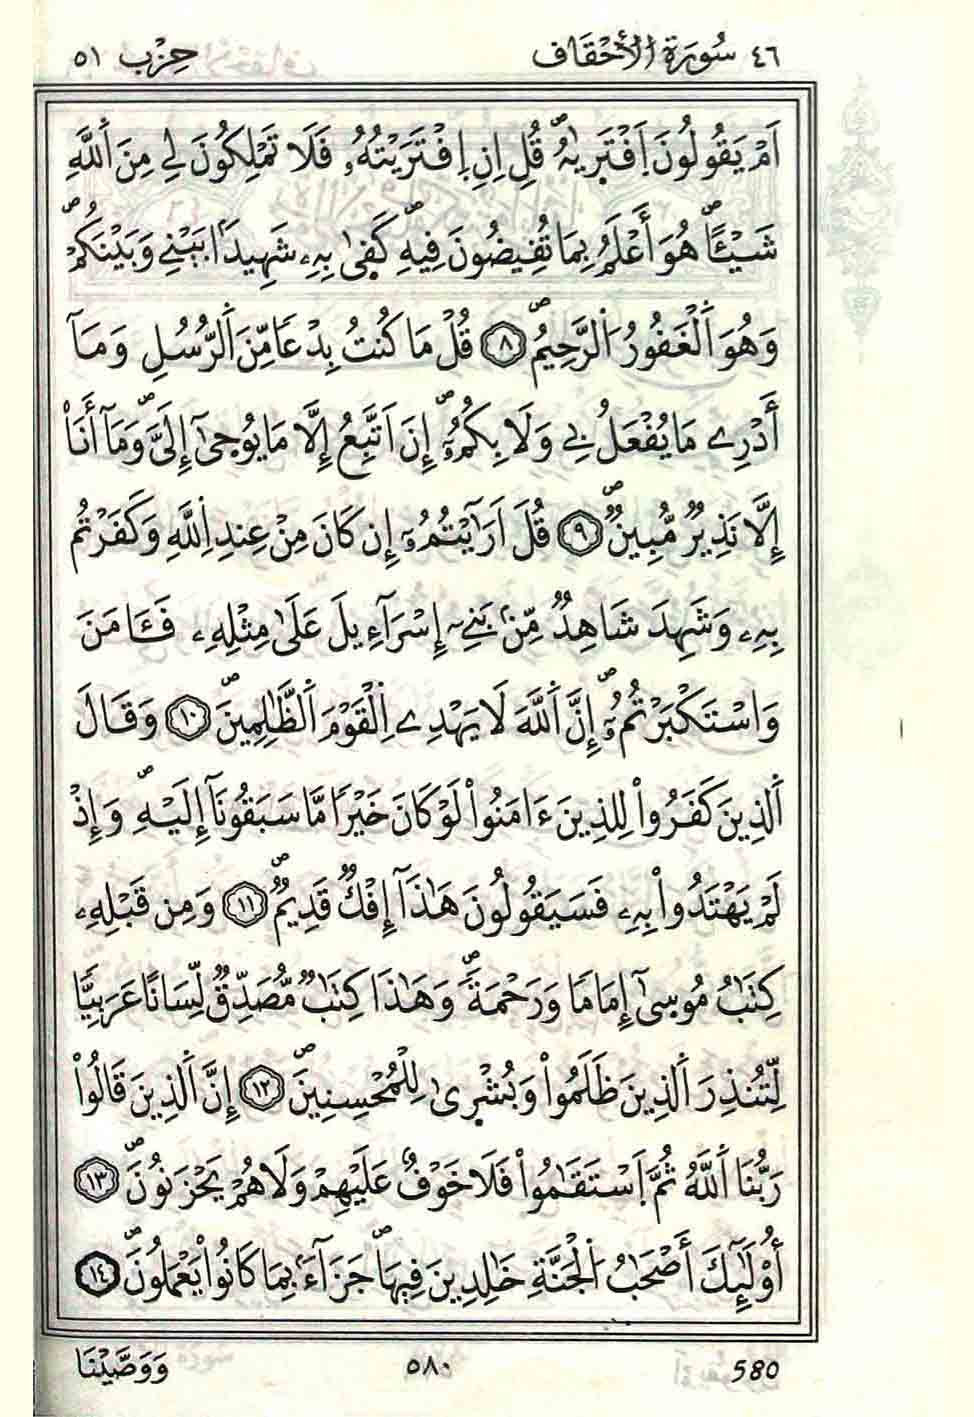 ٤٦ سُورَةُ الأَحْقَاف حِزْب ٥١
اَمْ يَقُولُونَ اَفْتَرٜيٰهُۖ قُلِ اِنِ اِ۪فْتَرَيْتُهُۥ فَلَا تَمْلِكُونَ لِے مِنَ اَ۬للَّهِ
شَيْـًٔاۖ هُوَ أَعْلَمُ بِمَا تُفِيضُونَ فِيهِۖ كَف۪ىٰ بِهِۦ شَهِيدَاۢ بَيْنِے وَبَيْنَكُمْۖ
وَهُوَ اَ۬لْغَفُورُ اُ۬لرَّحِيمُۖ ٨ قُلْ مَا كُنتُ بِدْعاٗ مِّنَ اَ۬لرُّسُلِ وَمَآ
أَدْرِے مَا يُفْعَلُ بِے وَلَا بِكُمُۥٓۖ إِنَ اَتَّبِعُ إِلَّا مَا يُوح۪ىٰٓ إِلَيَّۖ وَمَآ أَنَا۠
إِلَّا نَذِيرٞ مُّبِينٞۖ ٩ قُلَ اَرَٰٓيْتُمُۥٓ إِن كَانَ مِنْ عِندِ اِ۬للَّهِ وَكَفَرْتُم
بِهِۦ وَشَهِدَ شَاهِدٞ مِّنۢ بَنِےٓ إِسْرَآءِيلَ عَلَىٰ مِثْلِهِۦ فَـَٔامَنَ
وَاسْتَكْبَرْتُمُۥٓۖ إِنَّ اَ۬للَّهَ لَا يَهْدِے اِ۬لْقَوْمَ اَ۬لظَّٰلِمِينَۖ ١٠ وَقَالَ
اَ۬لذِينَ كَفَرُواْ لِلذِينَ ءَامَنُواْ لَوْ كَانَ خَيْراٗ مَّا سَبَقُونَآ إِلَيْهِۖ وَإِذْ
لَمْ يَهْتَدُواْ بِهِۦ فَسَيَقُولُونَ هَٰذَآ إِفْكٞ قَدِيمٞۖ ١١ وَمِن قَبْلِهِۦ
كِتَٰبُ مُوس۪ىٰٓ إِمَاماٗ وَرَحْمَةٗۖ وَهَٰذَا كِتَٰبٞ مُّصَدِّقٞ لِّسَاناً عَرَبِيّاٗ
لِّتُنذِرَ اَ۬لذِينَ ظَلَمُواْ وَبُشْر۪ىٰ لِلْمُحْسِنِينَۖ ١٢ إِنَّ اَ۬لذِينَ قَالُواْ
رَبُّنَا اَ۬للَّهُ ثُمَّ اَ۪سْتَقَٰمُواْ فَلَا خَوْفٌ عَلَيْهِمْ وَلَا هُمْ يَحْزَنُونَۖ ١٣
أُوْلَٰٓئِكَ أَصْحَٰبُ اُ۬لْجَنَّةِ خَٰلِدِينَ فِيهَاۖ جَزَآءَۢ بِمَا كَانُواْ يَعْمَلُونَۖ ١٤
وَوَصَّيْنَا ٥٨٠ 580